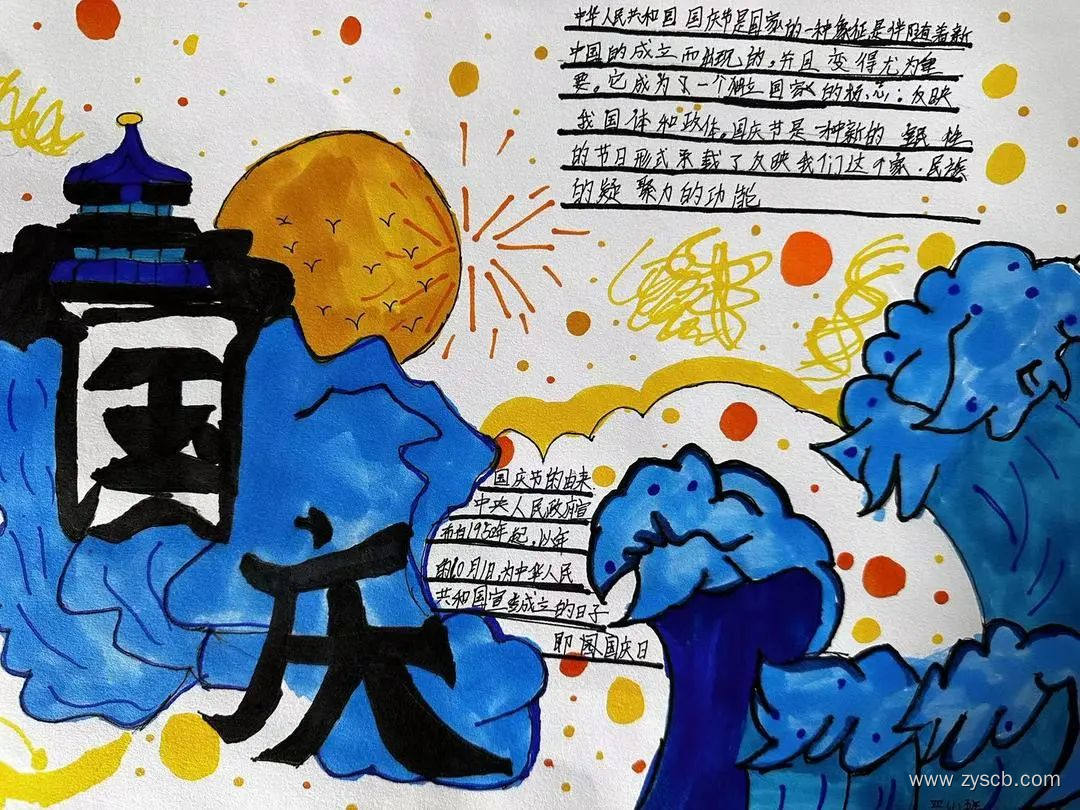 中华人民共和国 国庆节是国家的一种象征是伴随着新
中国的成立而出现的,并且 变得尤为重
要。它成为了一个独立国家的标志:反映
我国体和政体。国庆节是一种新的 全民 性
的节日形式承载了反映我们这个家.民族
的疑聚力的功能
国
庆
国庆节的由来
中央人民政府宣
布自1950年起,以年
10月1日,为中华人民
共和国宣告成立的日子
即 国国庆日
www.zyscb.com